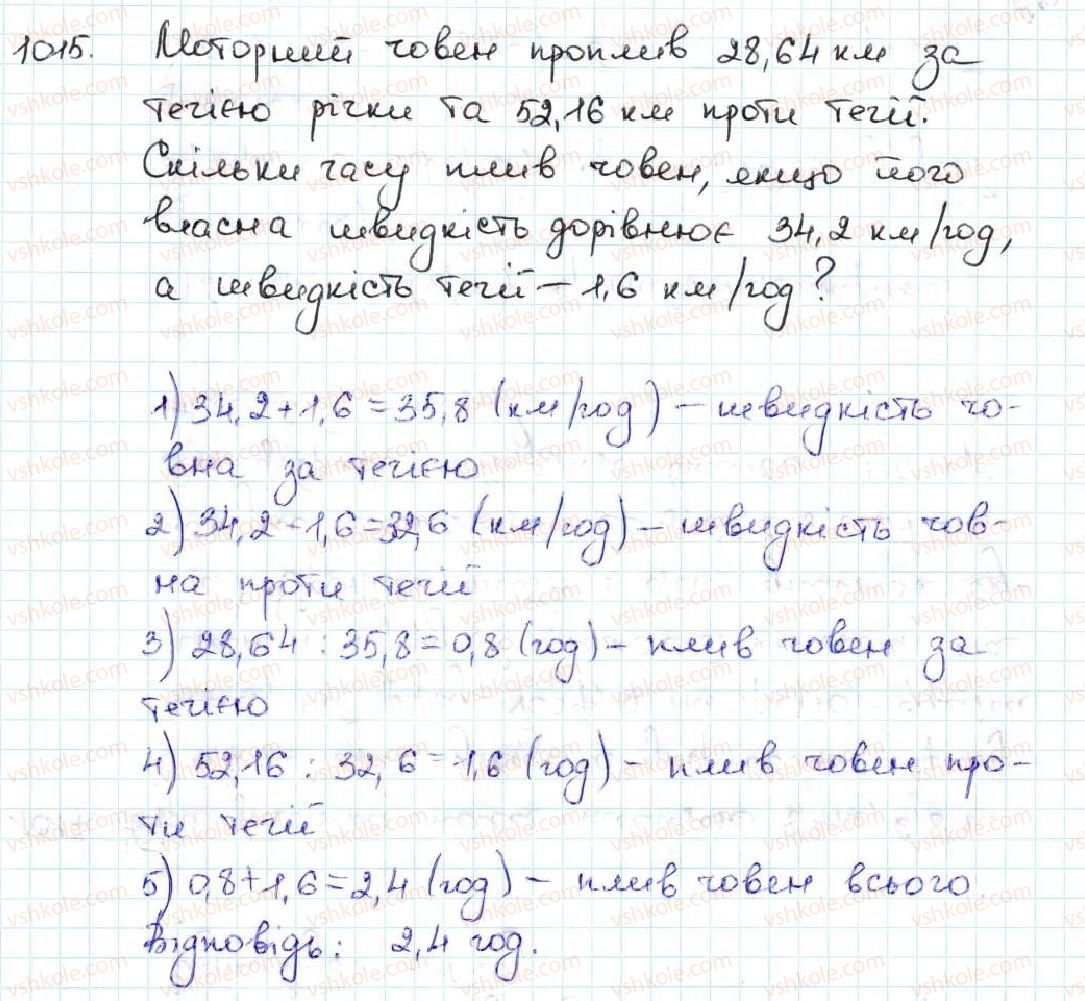 1015. Моторний човен проплив 28,64 км за
течією річки та 52,16 км проти течії.
Скільки часу плив човен, якщо його
власна швидкість дорівнює 34,2 км/год,
а швидкість течії – 1,6 км/год?
1) 34,2 + 1,6 = 35,8 (км/год) – швидкість чо-
вна за течією
2) 34,2 - 1,6 = 32,6 (км/год) – швидкість чов-
на проти течії
3) 28,64 : 35,8 = 0,8 (год) – плив човен за
течією
4) 52,16 : 32,6 = 1,6 (год) – плив човен про-
ти течії
5) 0,8 + 1,6 = 2,4 (год) – плив човен всього.
Відповідь: 2,4 год.